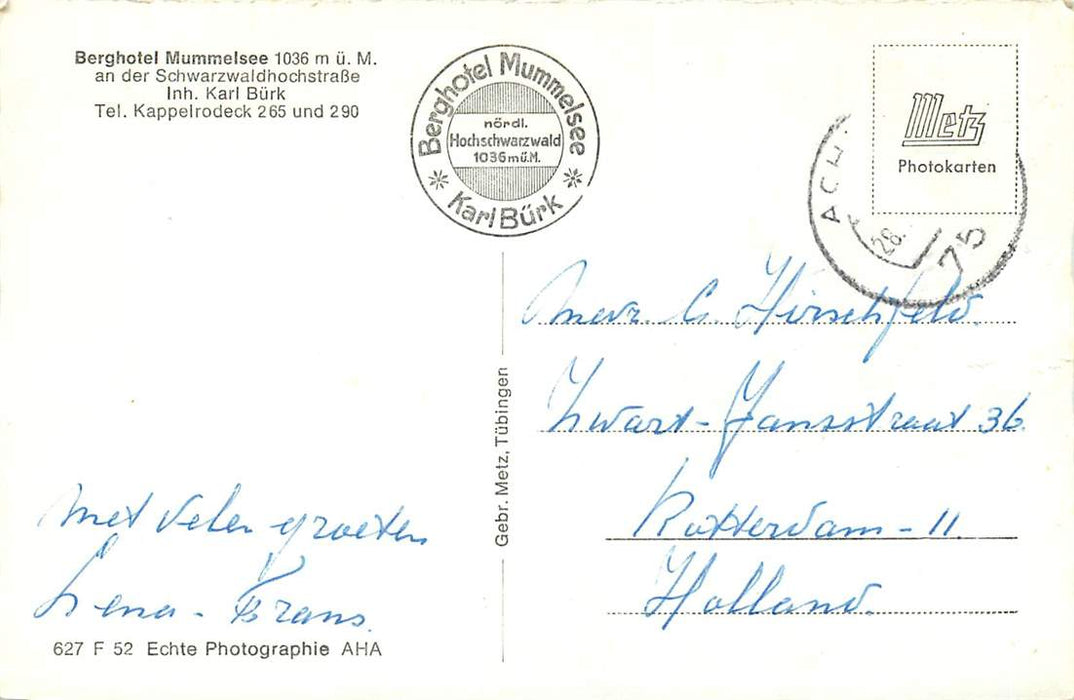 Berghotel Mummelsee 1036 m ü. M.
an der Schwarzwaldhochstraße
Inh. Karl Bürk
Tel. Kappelrodeck 265 und 290
Berghotel Mummelsee
nördl.
Hochschwarzwald
1036 m ü. M.
Karl Bürk
Metz
Photokarten
28.
75
Mevr. C. Hirschfeld.
Zwart-Jansstraat 36
Rotterdam - 11.
Holland.
Gebr. Metz, Tübingen
Met velen groeten
Lena - Frans.
627 F 52 Echte Photographie AHA